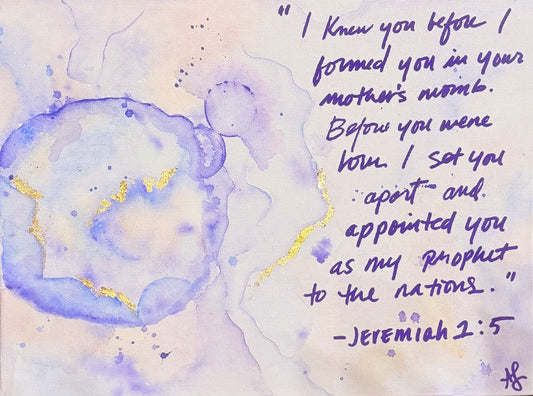 "I Knew you before I
formed you in your
mother's womb.
Before you were
born I set you
apart and
appointed you
as my prophet
to the nations."
-Jeremiah 1:5